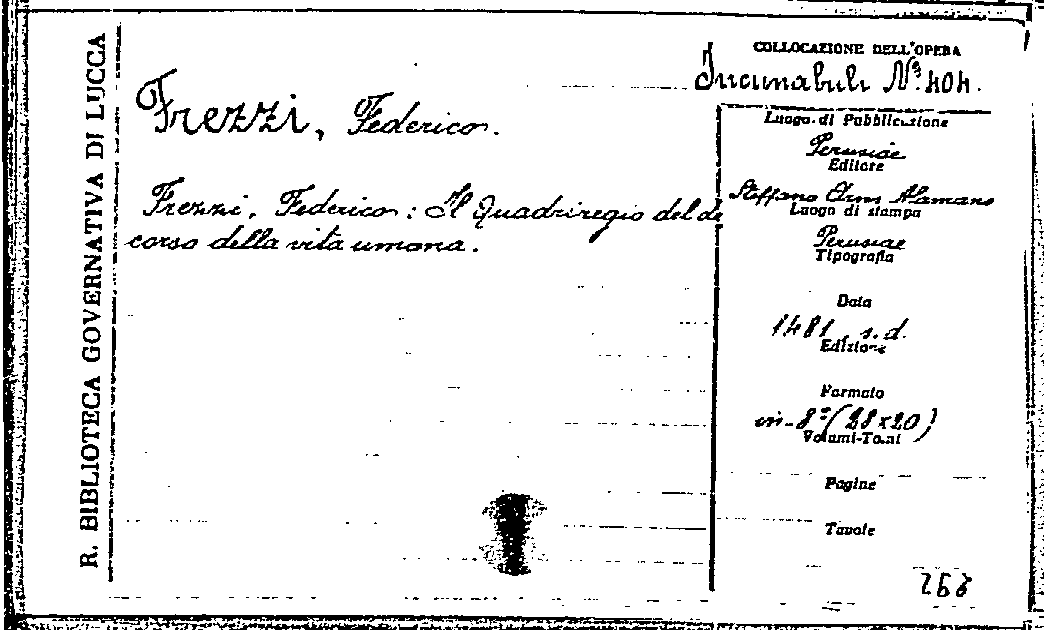 R. BIBLIOTECA GOVERNATIVA DI LUCCA
Frezzi, Federico.
Frezzi, Federico: Il Quadriregio del de
corso della vita umana.
COLLOCAZIONE DELL'OPERA
Incunabuli Nº 404.
Luogo di Pubblicazione
Perusiae
Editore
Steffano Arns Alamano
Luogo di stampa
Perusiae
Tipografia
Data
1481, s.d.
Edizione
Formato
in-8º (28x20)
Volumi-Tomi
Pagine
Tavole